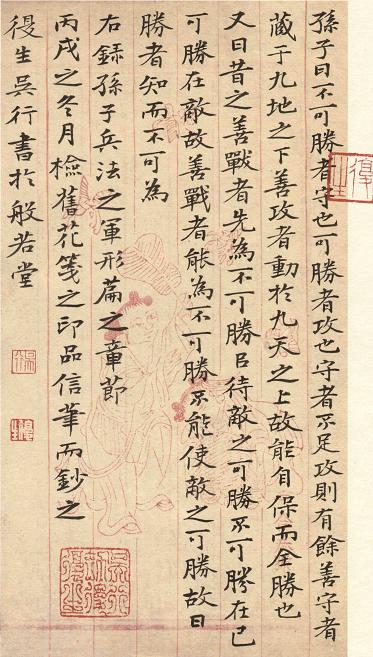 孫子曰不可勝者守也可勝者攻也守者不足攻則有餘善守者
藏于九地之下善攻者動於九天之上故能自保而全勝也
又曰昔之善戰者先為不可勝㠯待敵之可勝不可勝在己
可勝在敵故善戰者能為不可勝不能使敵之可勝故曰
勝者知而不可為
右録孫子兵法之軍形篇之章節
丙戌之冬月檢舊花箋之印品信筆而鈔之
復生吳行書於般若堂
復生
吳行
復生